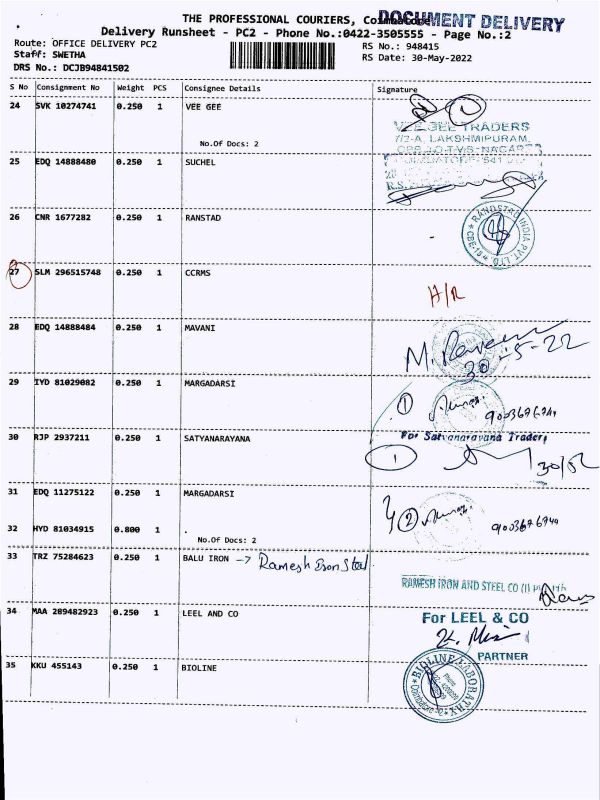 THE PROFESSIONAL COURIERS, Coimbatore
DOCUMENT DELIVERY
Delivery Runsheet - PC2 - Phone No.:0422-3505555 - Page No.:2
Route: OFFICE DELIVERY PC2
RS No.: 948415
Staff: SWETHA
RS Date: 30-May-2022
DRS No.: DCJB94841502
S No Consignment No Weight PCS Consignee Details Signature
24 SVK 10274741 0.250 1 VEE GEE
No.Of Docs: 2
VEE GEE TRADERS
7/2-A, LAKSHMIPURAM,
25 EDQ 14888480 0.250 1 SUCHEL
26 CNR 1677282 0.250 1 RANSTAD
RANDSTAD INDIA PVT. LTD
27 SLM 296515748 0.250 1 CCRMS
H/R
28 EDQ 14888484 0.250 1 MAVANI
30-5-22
29 IYD 81029082 0.250 1 MARGADARSI
1
For Satyanarayana Traders
30 RJP 2937211 0.250 1 SATYANARAYANA
1
31 EDQ 11275122 0.250 1 MARGADARSI
2
32 HYD 81034915 0.800 1
No.Of Docs: 2
33 TRZ 75284623 0.250 1 BALU IRON → Ramesh Iron Steel
RAMESH IRON AND STEEL CO (I) P
34 MAA 289482923 0.250 1 LEEL AND CO
For LEEL & CO
PARTNER
35 KKU 455143 0.250 1 BIOLINE
BIOLINE LABORATRY